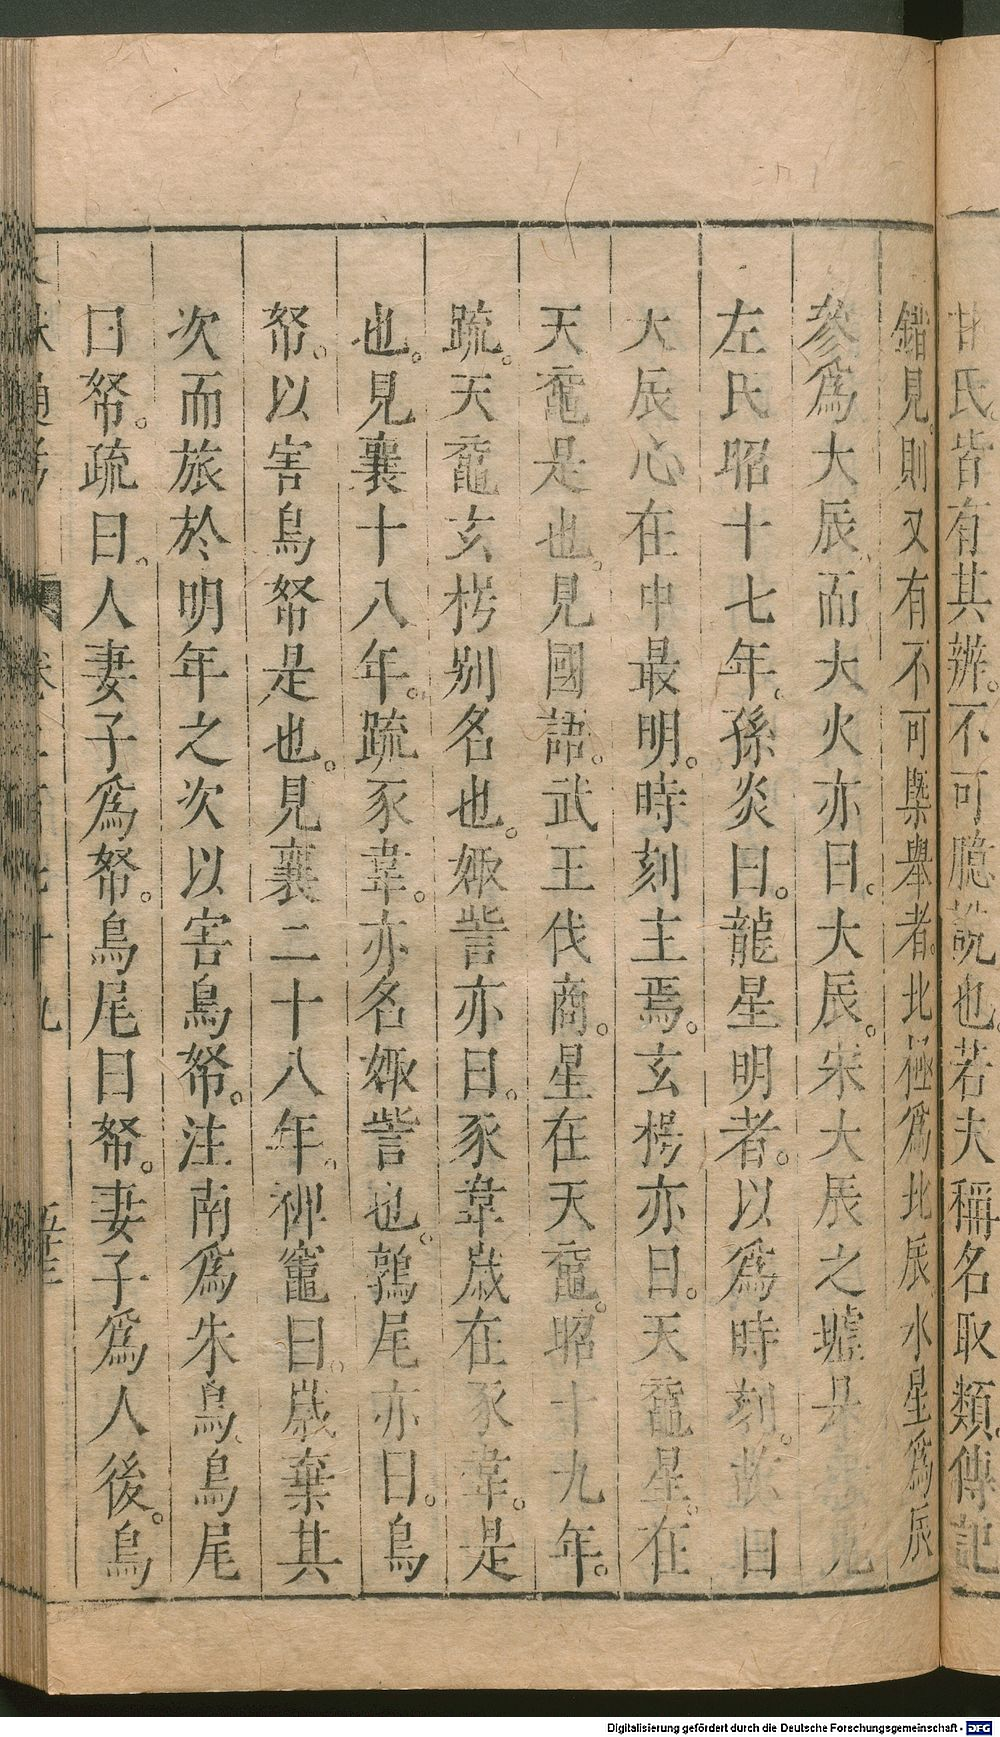 甘氏皆有其辨。不可臆說也若夫稱名取類。傳記
錯見。則又有不可槩舉者。北極爲北辰水星爲辰
參爲大辰、而大火亦曰。大辰。宋大辰之墟是也見
左氏昭十七年。孫炎曰。龍星明者。以爲時刻。故曰
大辰心在中最明。時刻主焉。玄枵亦曰。天黿星。在
天黿是也。見國語。武王伐商。星在天黿。昭十九年。
疏。天黿玄枵別名也。娵訾亦曰。豕韋歲在豕韋。是
也。見襄十八年。疏豕韋。亦名娵訾也。鶉尾亦曰。鳥
帑。以害鳥帑是也。見襄二十八年。裨竈曰。歲棄其
次而旅於明年之次以害鳥帑。注南爲朱鳥、鳥尾
曰帑。疏曰。人妻子爲帑。鳥尾曰帑。妻子爲人後。鳥
Digitalisierung gefördert durch die Deutsche Forschungsgemeinschaft - DFG